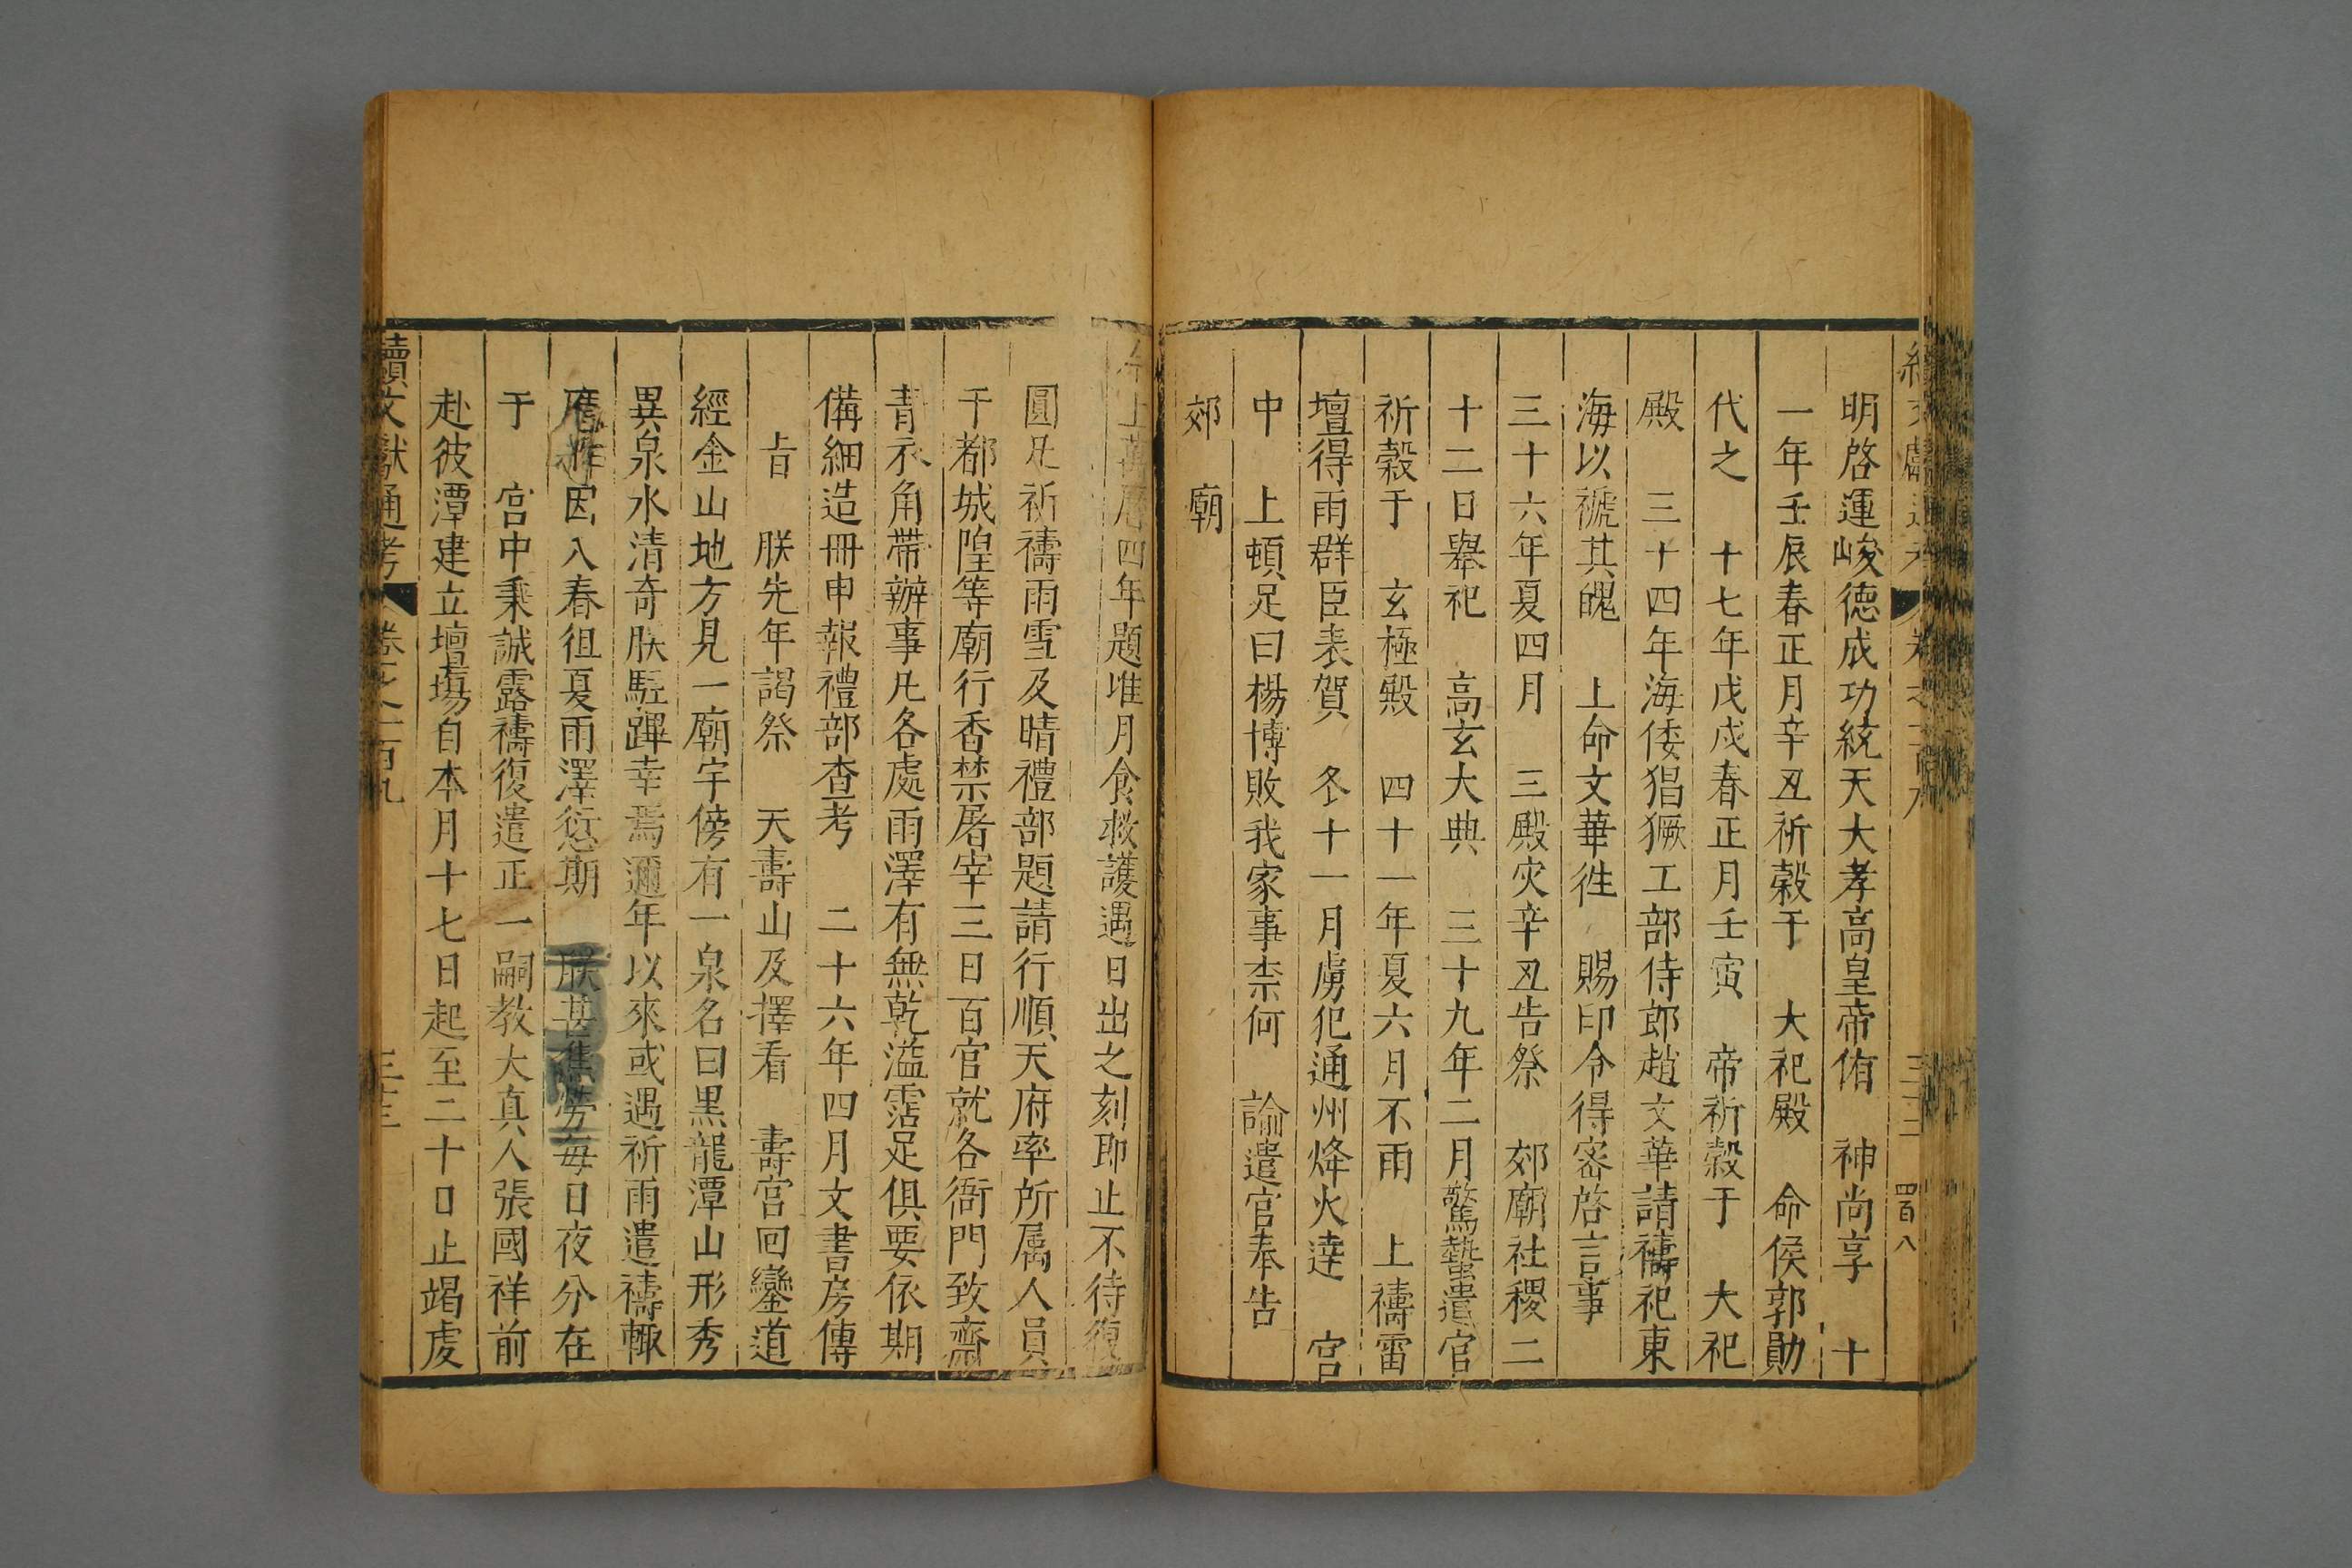 明啓運峻德成功統天大孝高皇帝侑　神尚享　十
一年壬辰春正月辛丑祈穀于　大祀殿　命侯郭勛
代之　十七年戊戌春正月壬寅　帝祈穀于　大祀
殿　三十四年海倭猖獗工部侍郎趙文華請禱祀東
海以禠其醜　上命文華徃　賜印令得密啓言事
三十六年夏四月　三殿灾辛丑告祭　郊廟社稷二
十二日舉祀　高玄大典　三十九年二月驚蟄遣官
祈穀于　玄極殿　四十一年夏六月不雨　上禱雷
壇得雨群臣表賀　冬十一月虜犯通州烽火達　宮
中　上頓足曰楊博敗我家事柰何　諭遣官奉告
郊　廟
上萬曆四年題准月食救護遇日出之刻即止不待復
圓凡祈禱雨雪及晴禮部題請行順天府率所属人員
于都城隍等廟行香禁屠宰三日百官就各衙門致齋
青衣角帶辦事凡各處雨澤有無乾溢霑足俱要依期
備細造冊申報禮部查考　二十六年四月文書房傳
旨　朕先年謁祭　天壽山及擇看　壽宮回鑾道
經金山地方見一廟宇傍有一泉名曰黑龍潭山形秀
異泉水清奇朕駐蹕幸焉邇年以來或遇祈雨遣禱輙
應昨因入春徂夏雨澤愆期　朕甚焦勞每日夜分在
于　宮中秉誠露禱復遣正一嗣教大真人張國祥前
赴彼潭建立壇塲自本月十七日起至二十日止竭虔
續文獻通考　卷之一百九　三十三